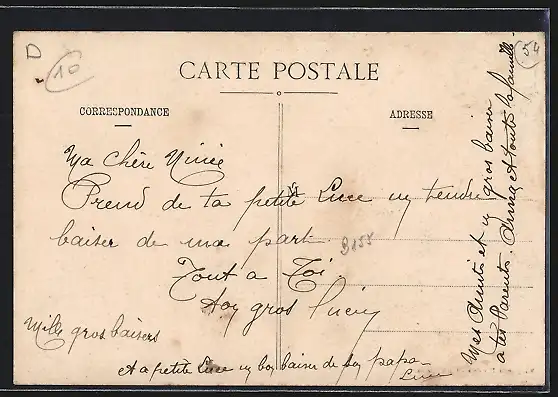 D
10
54
CARTE POSTALE
CORRESPONDANCE
ADRESSE
Ma Chère Ninie
Prend de ta petite Luce un tendre
baiser de ma part
B155
Tout a Toi
Ton gros
Mille gros baisers
et a petite Luce un bon baiser de son papa
Luce
Mes Amitiés et un gros baiser
a tes Parents. et toute la famille.